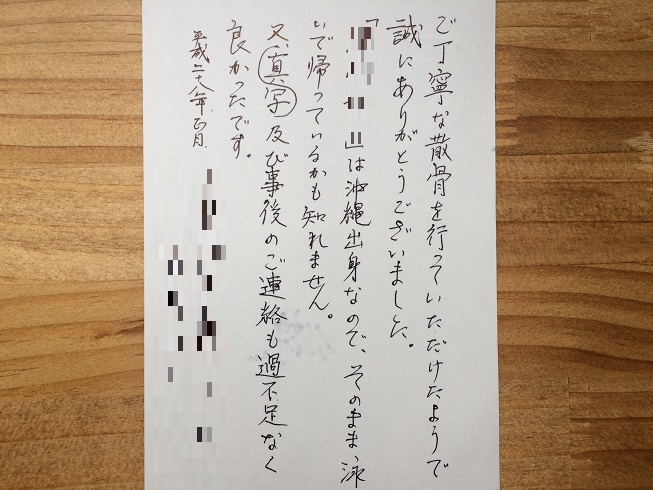 ご丁寧な散骨を行っていただけたようで
誠にありがとうございました。
「 」は沖縄出身なので、そのまま泳
いで帰っているかも知れません。
又、真字及び事後のご連絡も過不足なく
良かったです。
平成二十八年正月